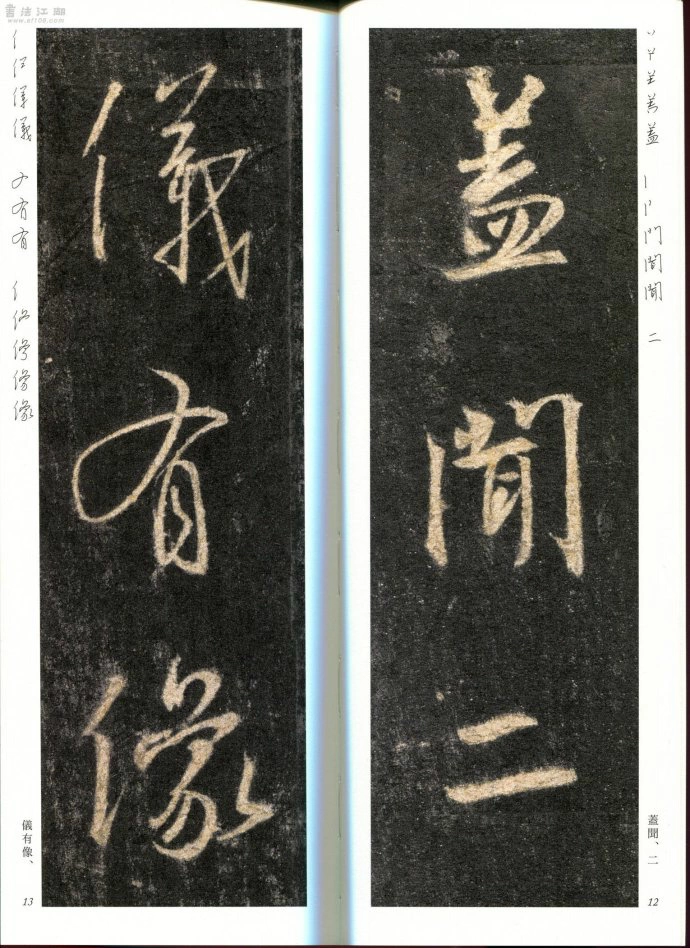 書法江湖
www.sf108.com
蓋聞二
蓋聞、二
12
儀有像
儀有像、
13